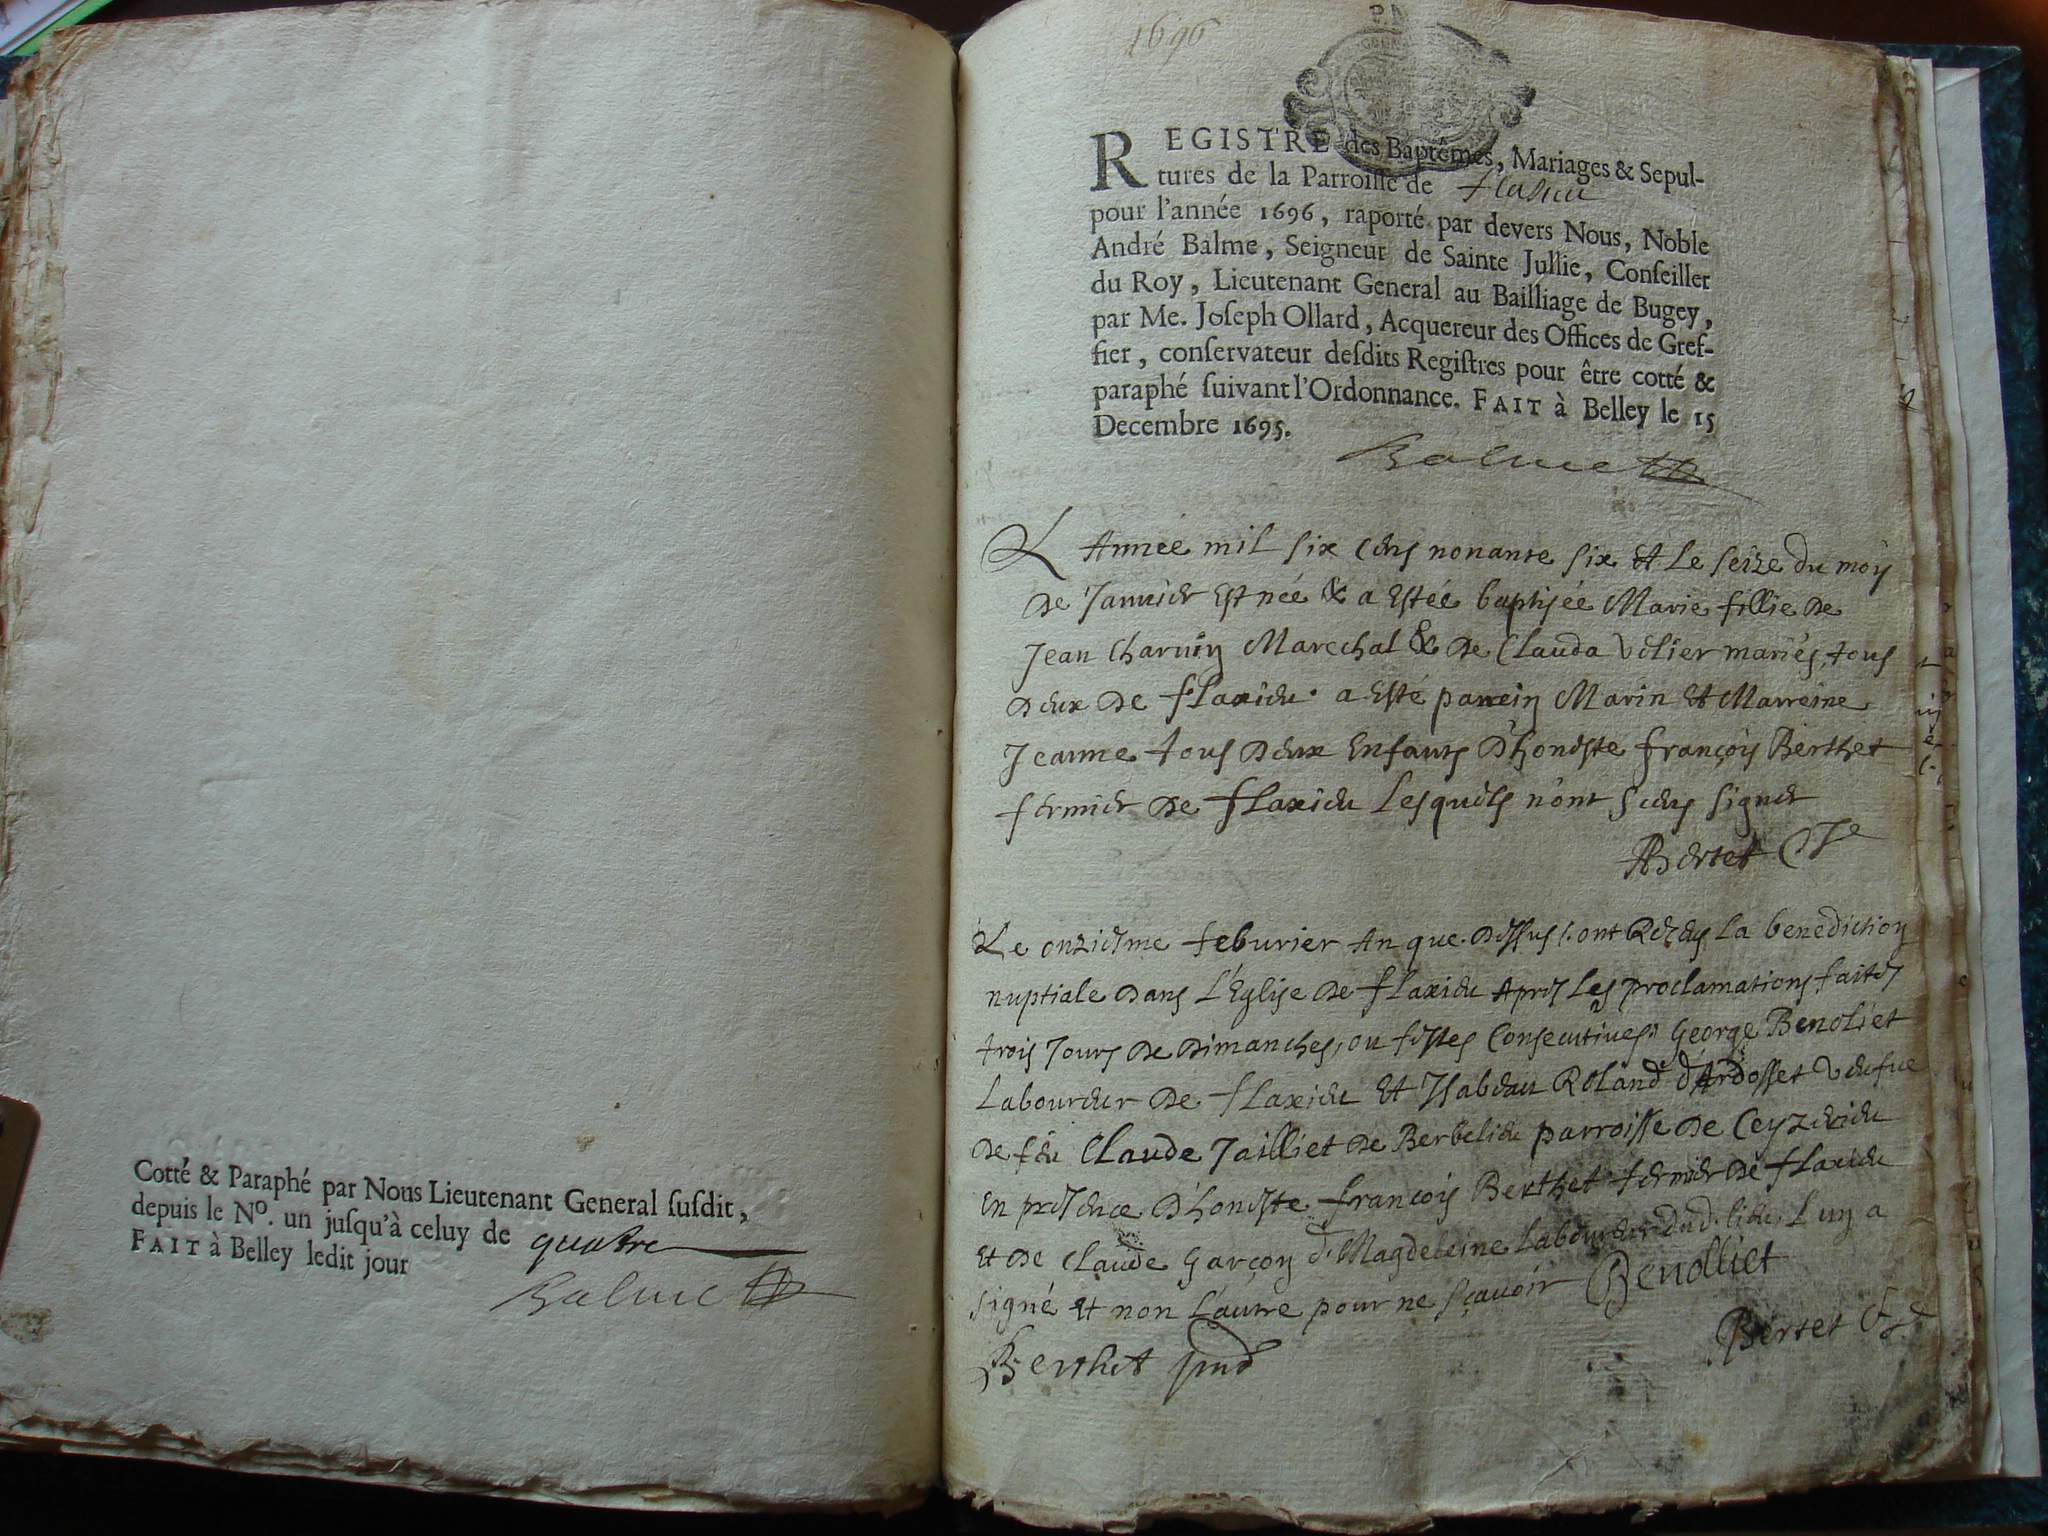 Cotté & Paraphé par Nous Lieutenant General susdit,
depuis le No. un jusqu'à celuy de quatre
FAIT à Belley ledit jour
Balme
1696
REGISTRE des Baptêmes, Mariages & Sepul-
tures de la Parroisse de flasieu
pour l'année 1696, raporté par devers Nous, Noble
André Balme, Seigneur de Sainte Jullie, Conseiller
du Roy, Lieutenant General au Bailliage de Bugey,
par Me. Joseph Ollard, Acquereur des Offices de Gref-
fier, conservateur desdits Registres pour être cotté &
paraphé suivant l'Ordonnance. FAIT à Belley le 15
Decembre 1695.
Balme
L Année mil six cens nonante six et le seize du moys
de Januier est née & a estée baptisée Marie fillie de
Jean Charuin Marechal & de Clauda Velier mariés, tous
deux de flaxieu. a esté parrein Marin et Marreine
Jeanne tous deux enfants d'honeste françois Berthet
fermier de flaxieu lesquels n'ont sceu signer
Bertet
Le onziesme feburier an que dessus s.ont Receu la benediction
nuptiale dans l'Eglise de flaxieu apres les proclamations faites
trois jours de dimanches, ou festes Consecutiues George Benoliet
Laboureur de flaxieu et Isabeau Roland d'Ardosset veufue
de feu Claude Jailliet de Berbelieu parroisse de Ceyzerieu
en presence d'honeste françois Berthet fermier de flaxieu
et de Claude Garçon d. Magdeleine laboureur dud. lieu l'un a
signé et non l'autre pour ne sçauoir Benolliet
Berthet pnt
Bertet